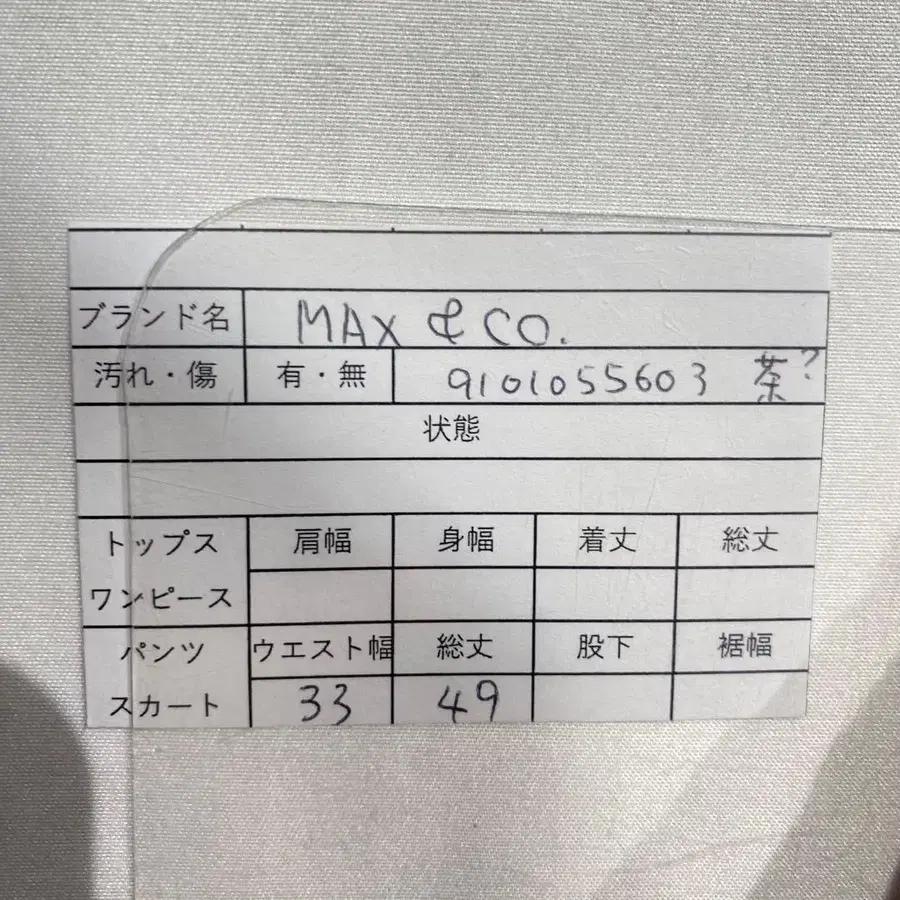 ブランド名 MAX & CO.
汚れ・傷 有・無 9101055603 茶?
状態
トップス 肩幅 身幅 着丈 総丈
ワンピース
パンツ ウエスト幅 総丈 股下 裾幅
スカート 33 49